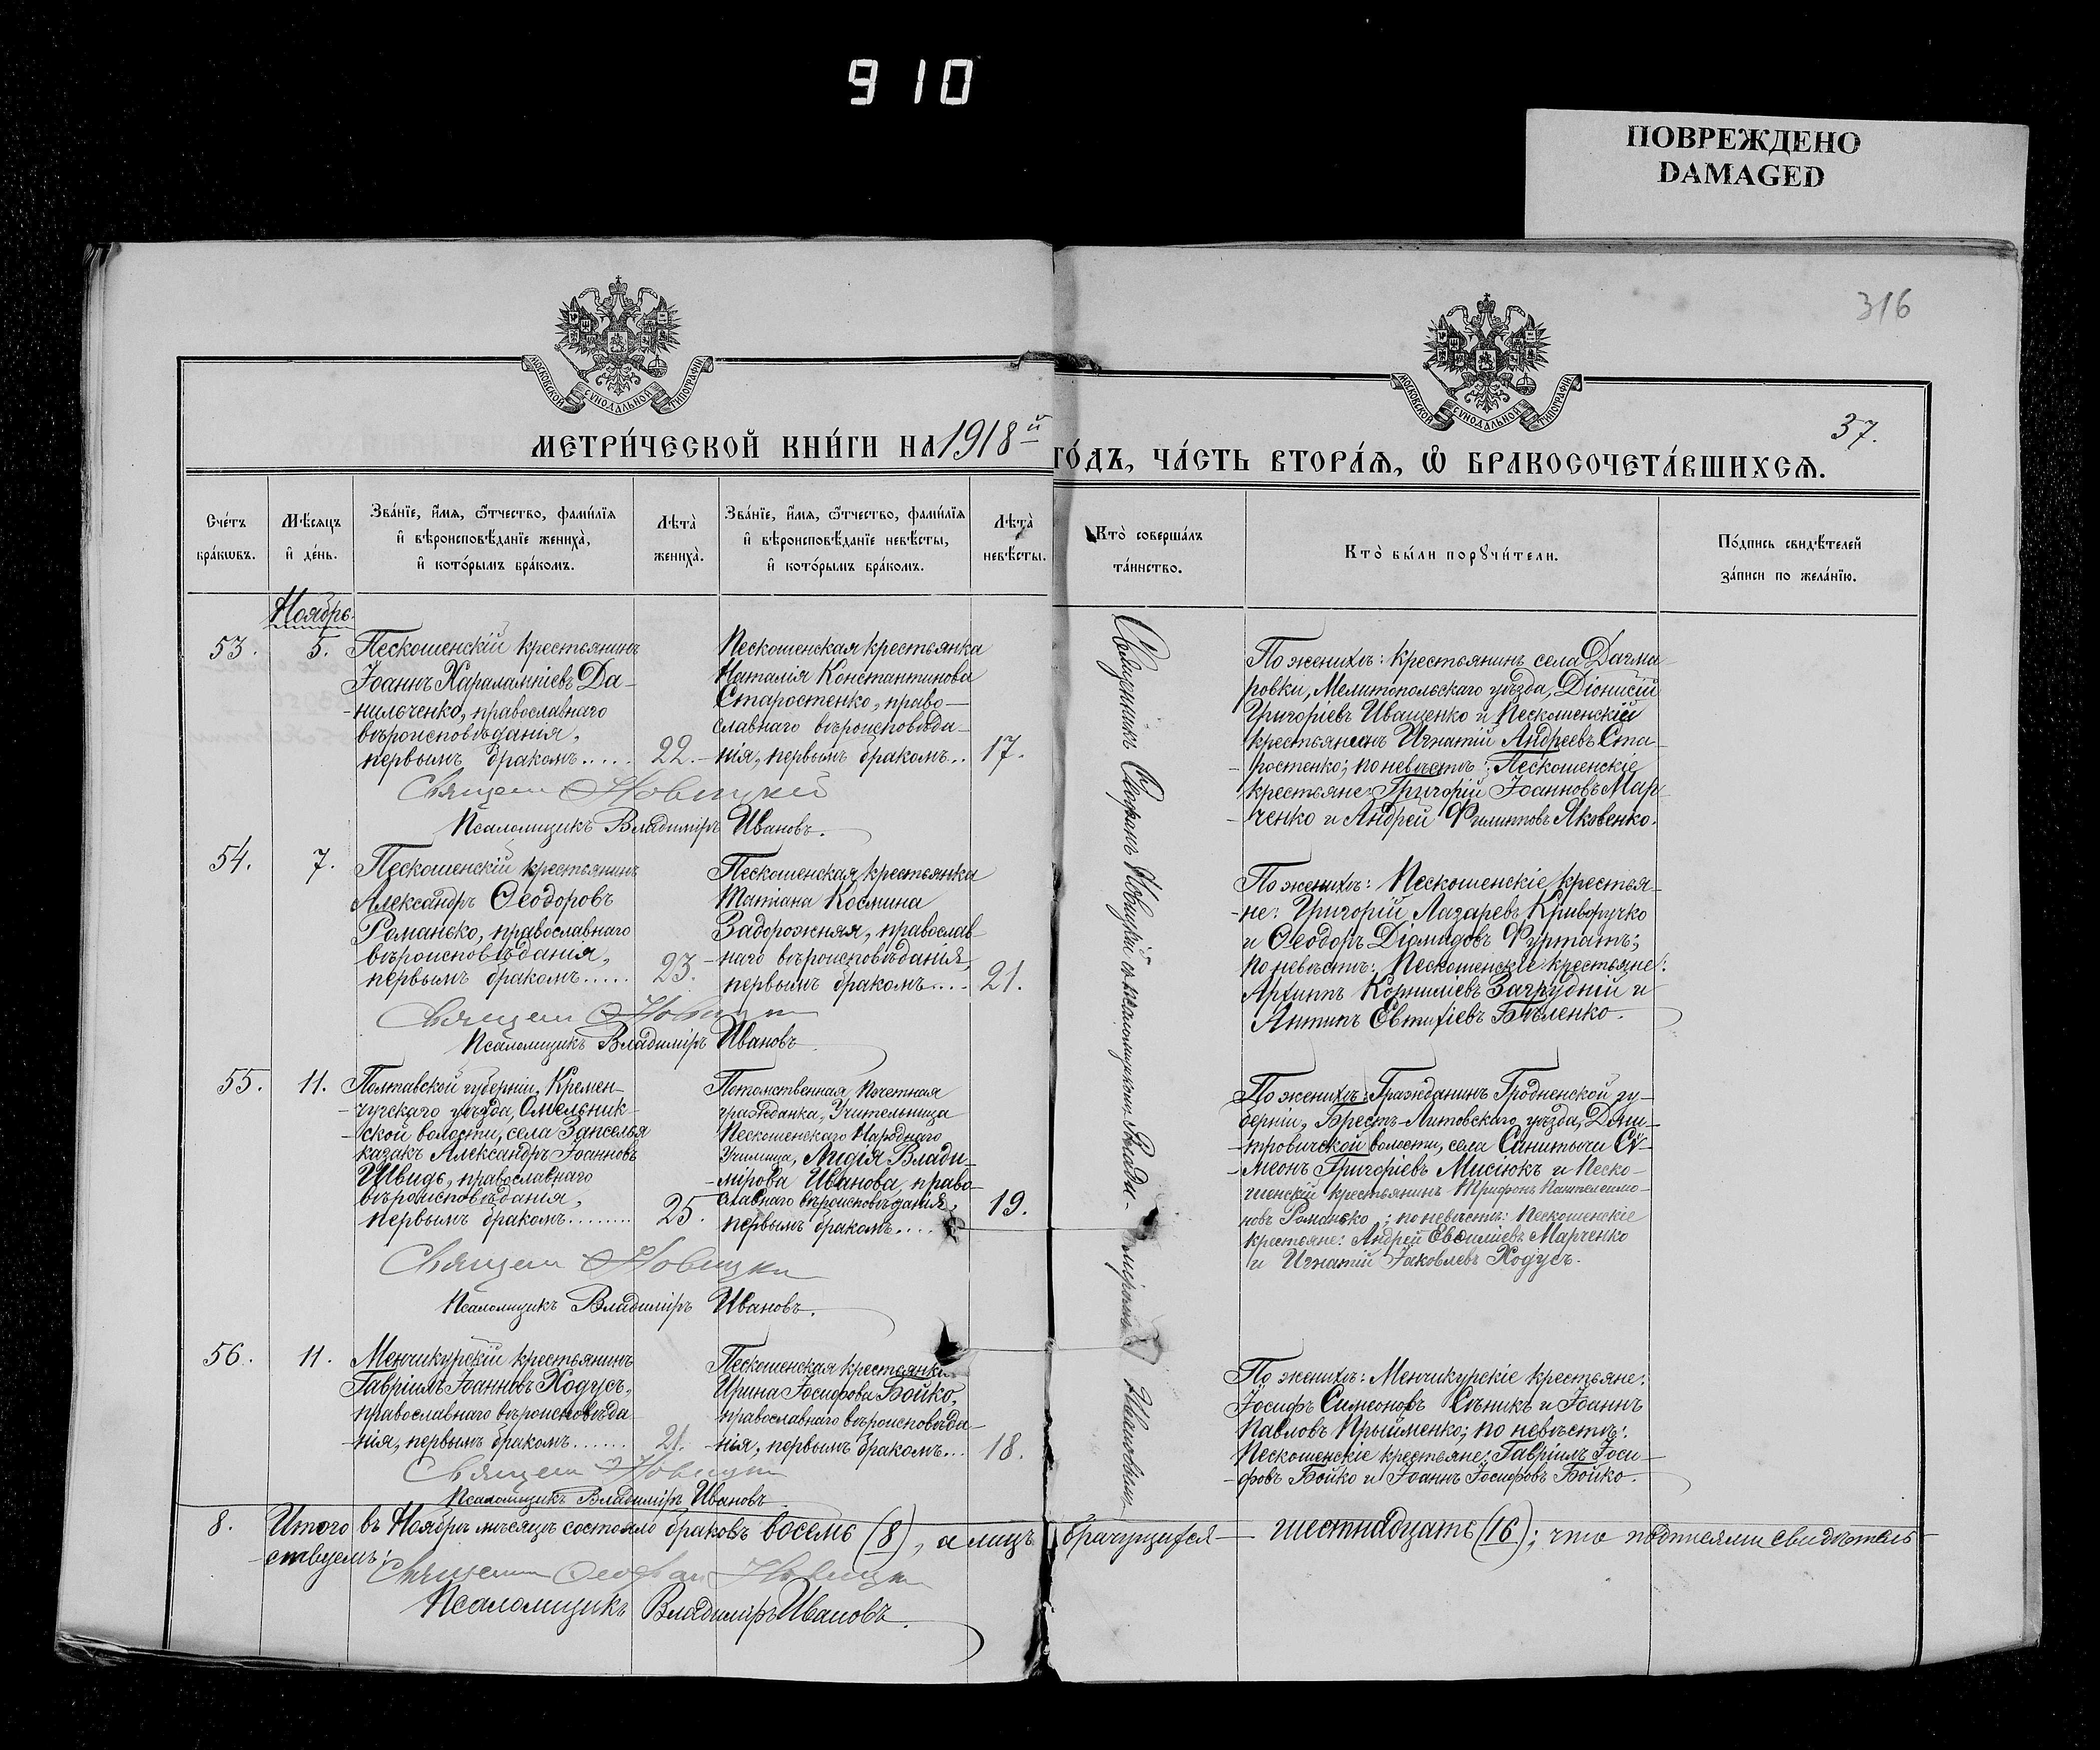 910
ПОВРЕЖДЕНО
DAMAGED
316
МОСКОВСКОЙ СѴНОДАЛЬНОЙ ТИПОГРАФІИ
МОСКОВСКОЙ СѴНОДАЛЬНОЙ ТИПОГРАФІИ
37.
МЕТРИ́ЧЕСКОЙ КНИ́ГИ НА 1918й ГО́ДЪ, ЧА́СТЬ ВТОРА́Ѧ, Ѿ БРАКОСОЧЕТА́ВШИХСѦ.
Сче́тъ
бра́кѡвъ.
Мѣ́сяцъ
и҆ де́нь.
Зва́нїе, и҆́мѧ, ѻ҆́тчество, фами́лїѧ
и҆ вѣроисповѣ́данїе жениха̀,
и҆ кото́рымъ бра́комъ.
Лѣта̀
жениха̀.
Зва́нїе, и҆́мѧ, ѻ҆́тчество, фами́лїѧ
и҆ вѣроисповѣ́данїе невѣ́сты,
и҆ кото́рымъ бра́комъ.
Лѣта̀
невѣ́сты.
Кто̀ соверша́лъ
та́инство.
Кто̀ бы́ли порꙋчи́тели.
По́дпись свидѣ́телей
за́писи по жела́нїю.
Ноябрь.
53.
5.
Пескошенскій крестьянинъ
Іоаннъ Харалампіевъ Да-
-нильченко, православнаго
вѣроисповѣданія,
первымъ бракомъ.....
22.
Пескошенская крестьянка
Наталія Константинова
Старостенко, право-
славнаго вѣроисповѣда-
-нія, первымъ бракомъ..
17.
Священ Новицкій
Псаломщикъ Владиміръ Ивановъ.
По женихѣ: крестьянинъ села Дагма-
ровки, Мелитопольскаго уѣзда, Діонисій
Григоріевъ Иващенко и Пескошенскій
крестьянинъ Игнатій Андреевъ Ста-
-ростенко; по невѣстѣ: Пескошенскіе
крестьяне: Григорій Іоанновъ Мар-
-ченко и Андрей Филипповъ Яковенко.
54.
7.
Пескошенскій крестьянинъ
Александръ Ѳеодоровъ
Романько, православнаго
вѣроисповѣданія,
первымъ бракомъ.....
23.
Пескошенская крестьянка
Татіана Космина
Задорожняя, православ-
-наго вѣроисповѣданія,
первымъ бракомъ....
21.
Священ Новицкій
Псаломщикъ Владиміръ Ивановъ
По женихѣ: Пескошенскіе крестья-
-не: Григорій Лазаревъ Криворучко
и Ѳеодоръ Діомидовъ Фуртатъ;
по невѣстѣ: Пескошенскіе крестьяне:
Архиппъ Корниліевъ Загрудній и
Антипъ Евтихіевъ Бѣленко.
55.
11.
Полтавской губерніи, Кремен-
-чугскаго уѣзда, Омельник-
-ской волости, села Запселья
казакъ Александръ Іоанновъ
Швидь, православнаго
вѣроисповѣданія,
первымъ бракомъ........
25.
Потомственная Почетная
гражданка, Учительница
Пескошенскаго Народнаго
Училища, Лидія Влади-
-мірова Иванова, право-
славнаго вѣроисповѣданія,
первымъ бракомъ....
19.
Священ Новицкій
Псаломщикъ Владиміръ Ивановъ.
По женихѣ: Гражданинъ Гродненской гу-
берніи, Брестъ-Литовскаго уѣзда, Дми-
-тровичской волости, села Санитычи Си-
-меонъ Григоріевъ Мисіюкъ и Песко-
-шенскій крестьянинъ Трифонъ Пантелеимо-
новъ Романько; по невѣстѣ: Пескошенскіе
крестьяне: Андрей Марченко
и Игнатій Іаковлевъ Ходусъ.
56.
11.
Менчикурскій крестьянинъ
Гавріилъ Іоанновъ Ходусъ,
православнаго вѣроисповѣда-
-нія, первымъ бракомъ......
21.
Пескошенская крестьянка
Ирина Іосифова Бойко,
православнаго вѣроисповѣда-
-нія, первымъ бракомъ...
18.
Священ Новицкій
Псаломщикъ Владиміръ Ивановъ
По женихѣ: Менчикурскіе крестьяне:
Іосифъ Симеоновъ и Іоаннъ
Павловъ Прыйменко; по невѣстѣ:
Пескошенскіе крестьяне: Гавріилъ Іоси-
-фовъ Бойко и Іоаннъ Іосифовъ Бойко.
Священникъ Ѳеофанъ Новицкій съ псаломщикомъ Влади-
-міромъ Ивановымъ
8.
Итого въ Ноябрѣ мѣсяцѣ состояло браковъ восемь (8), а лицъ брачущихся— шестнадцать (16); что подписями свидѣтель-
-ствуемъ:
Священникъ Ѳеофанъ Новицкій
Псаломщикъ Владиміръ Ивановъ.